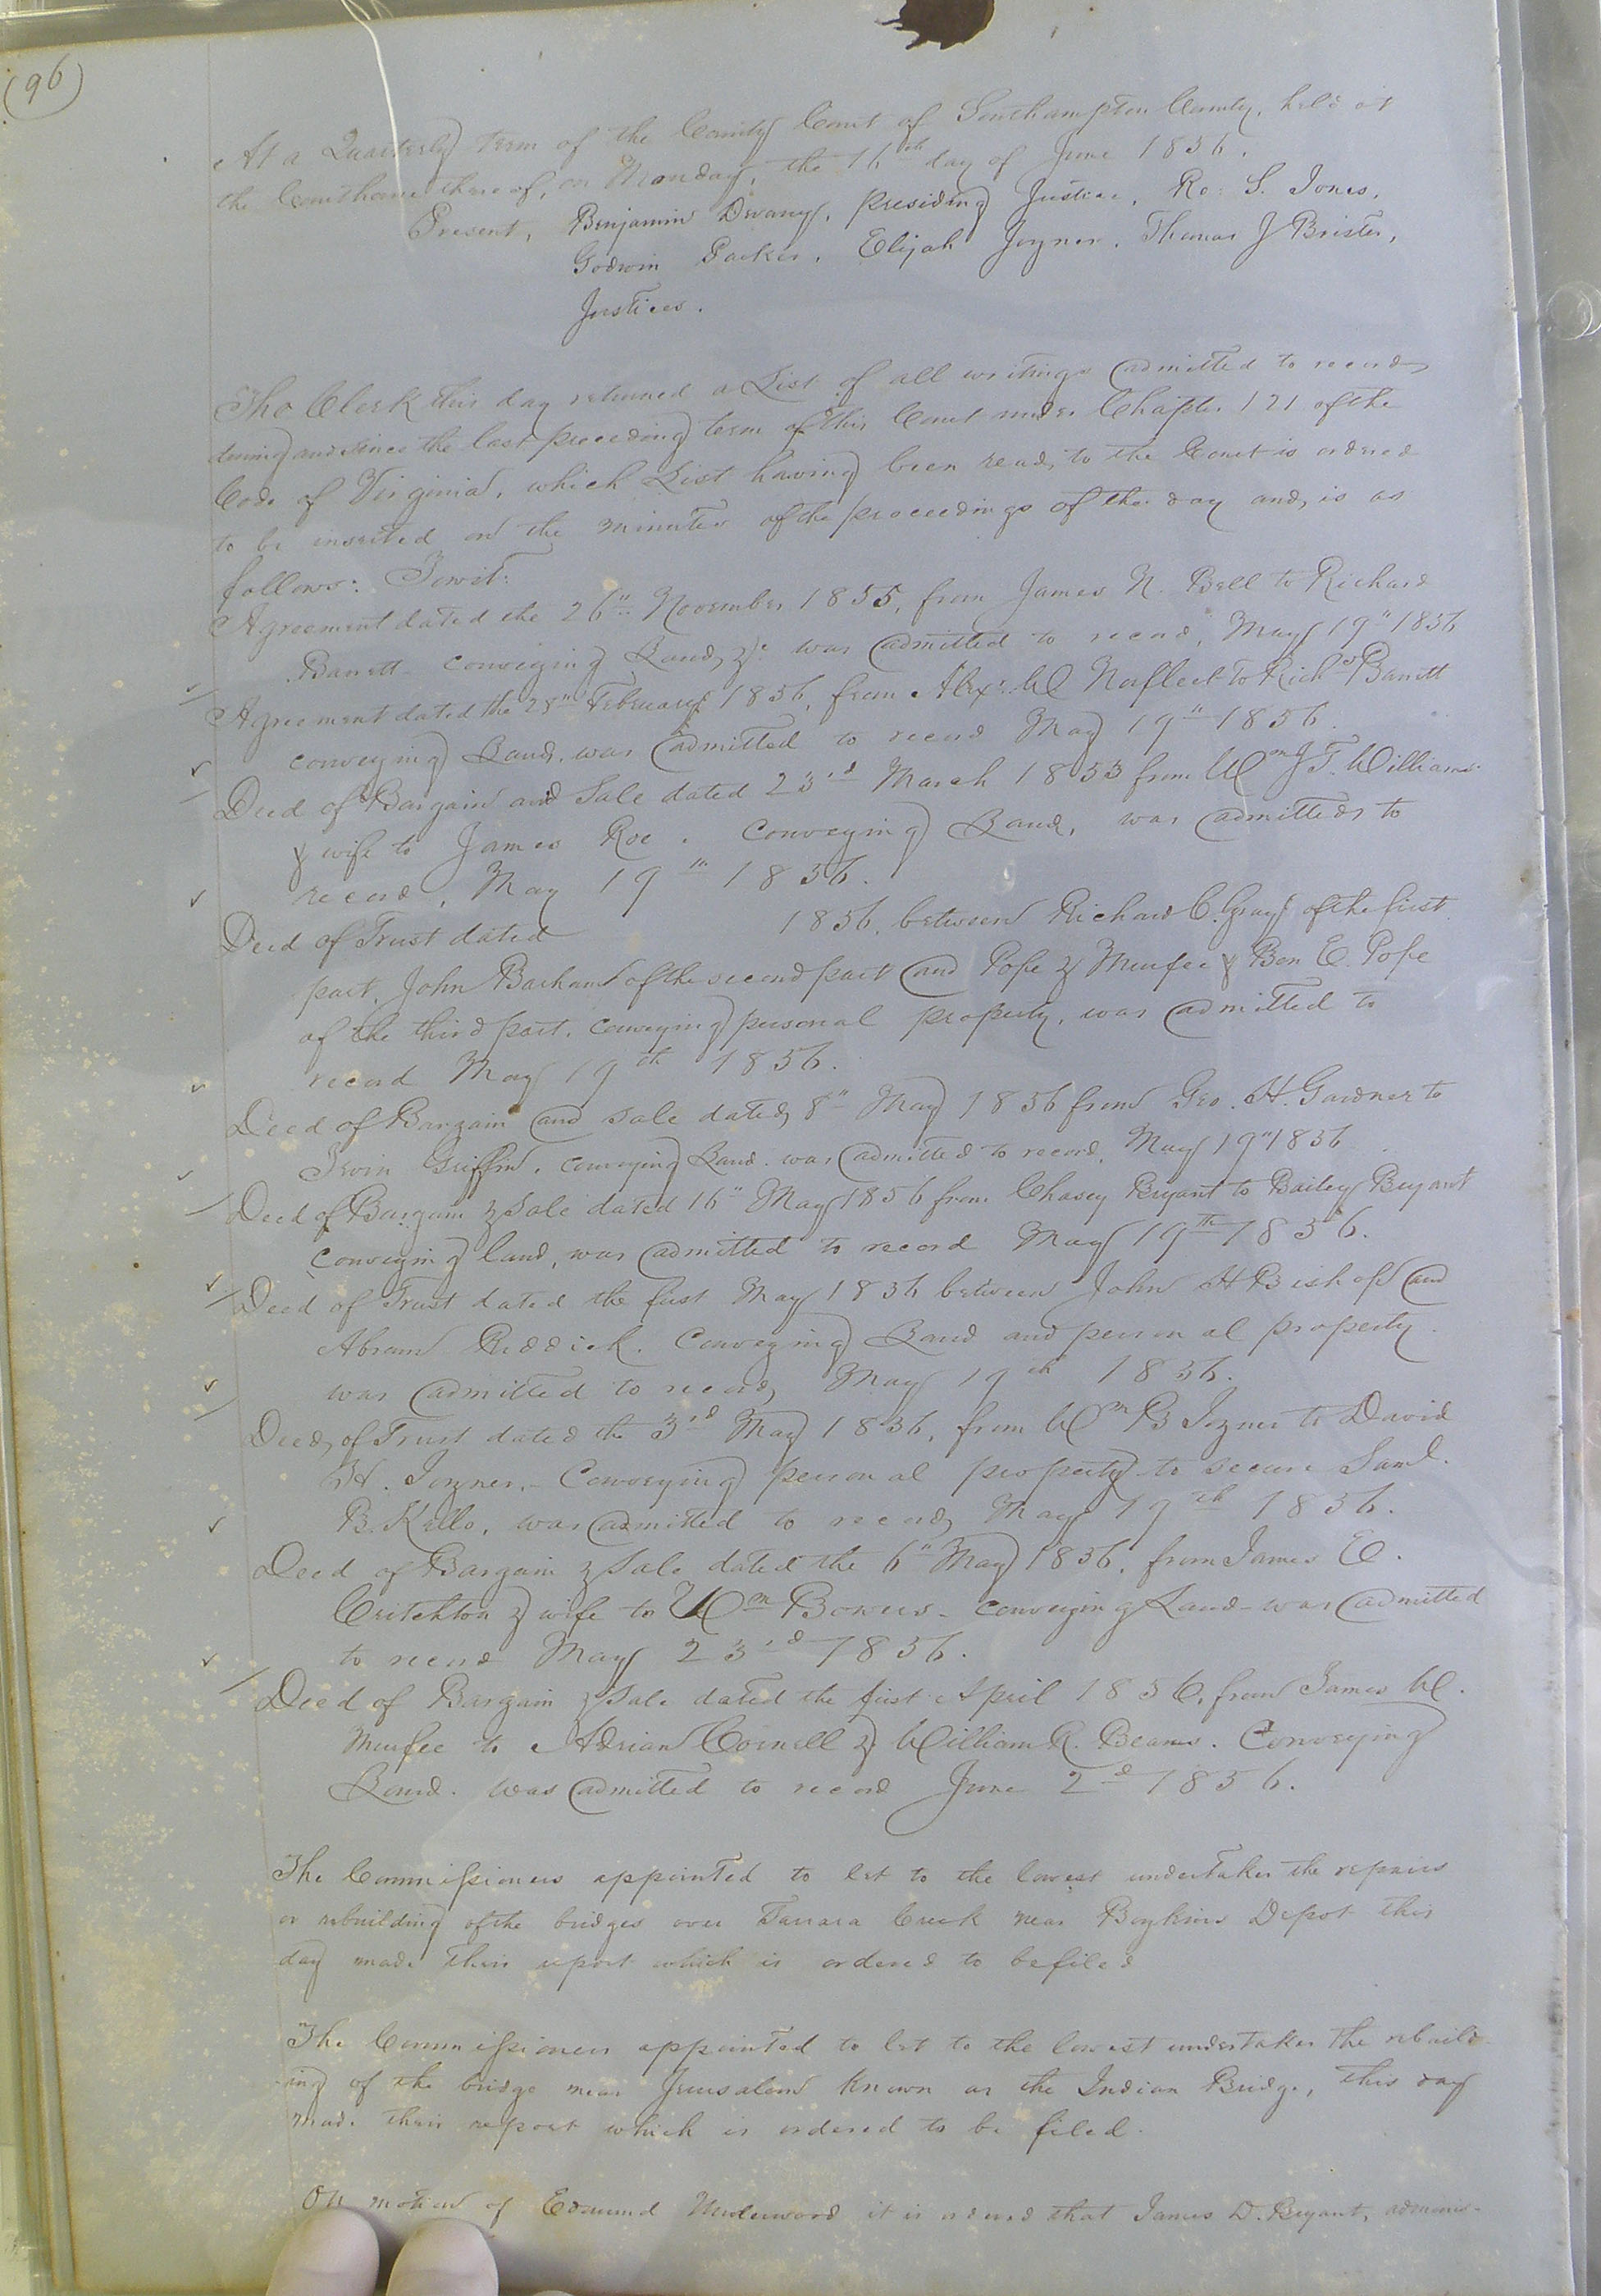 (96)
At a Quarterly Term of the County Court of Southampton County, held at
the Courthouse thereof, on Monday, the 16th day of June 1856.
Present, Benjamin Devany, presiding Justice, Ro: S. Jones,
Godwin Parker, Elijah Joyner, Thomas J Brister,
Justices.
The Clerk this day returned a List of all writings admitted to record
during and since the last preceeding term of this Court under Chapter 121 of the
Code of Virginia, which List having been read to the Court is ordered
to be inserted on the minutes of the proceedings of the day and is as
follows: Towit:
Agreement dated the 26th November 1855, from James N. Bell to Richard
Barrett conveying Land, &c was admitted to record, May 19th 1856
Agreement dated the 28th February 1856, from Alexr. W Norfleet to Richd Barrett
conveying Land, was admitted to record May 19th 1856.
Deed of Bargain and Sale dated 23rd March 1853 from Wm J T. Williams
& wife to James Roe. conveying Land, was admitted to
record, May 19th 1856.
Deed of Trust dated 1856, between Richard C. Gray of the first
part, John Barham of the second part and Pope & Murfee & Ben E. Pope
of the third part, conveying personal property, was admitted to
record May 19th 1856.
Deed of Bargain and sale dated 8th May 1856 from Geo. H. Gardner to
Irvin Griffin, conveying Land was admitted to record, May 19th 1856
Deed of Bargain & Sale dated 16th May 1856 from Chasey Bryant to Bailey Bryant
conveying land, was admitted to record May 19th 1856.
Deed of Trust dated the first May 1856 between John H Bishop and
Abram Riddick. Conveying Land and personal property
was admitted to record May 19th 1856.
Deed of Trust dated the 3rd May 1856, from Wm B Joyner to David
H. Joyner,- Conveying personal property to secure Saml.
B. Kello, was admitted to record May 19th 1856.
Deed of Bargain & Sale dated the 6th May 1856, from James E.
Critchton & wife to Wm Bowers - conveying Land - was admitted
to record May 23rd 1856.
Deed of Bargain & Sale dated the first April 1856, from James W.
Murfee to Adrian Cornell & William R. Beams. Conveying
Land. was admitted to record June 2d 1856.
The Commissioners appointed to let to the lowest undertaker the repairs
or rebuilding of the bridges over Tarrara Creek near Boykins Depot this
day made their report which is ordered to be filed
The Commissioners appointed to let to the lowest undertaker the rebuild-
-ing of the bridge near Jerusalem known as the Indian Bridge, this day
made their report which is ordered to be filed.
On motion of Edmund Underwood it is ordered that James D. Bryant, adminis-